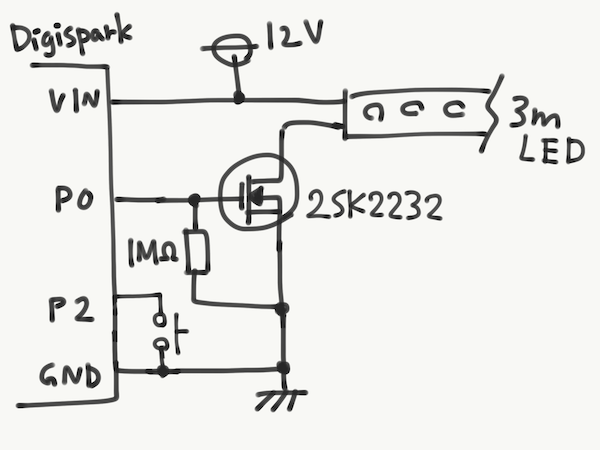 Digispark
12V
VIN
3m
LED
P0
2SK2232
1MΩ
P2
GND